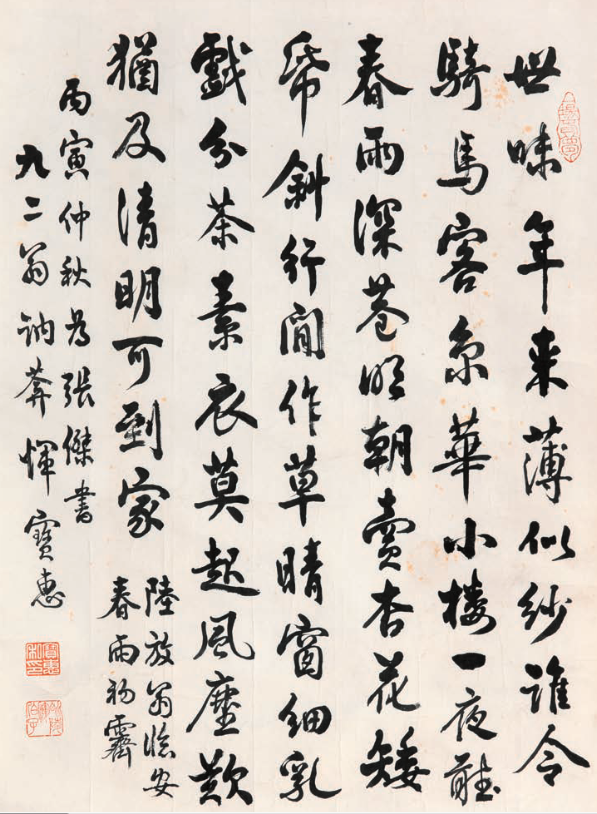 世味年来薄似紗誰令
騎馬客京華小樓一夜聽
春雨深巷明朝賣杏花矮
帋斜行閒作草晴窗細乳
戲分茶素衣莫起風塵歎
猶及清明可到家
陸放翁臨安
春雨初霽
丙寅仲秋為張傑書
九二翁訥惲寶惠